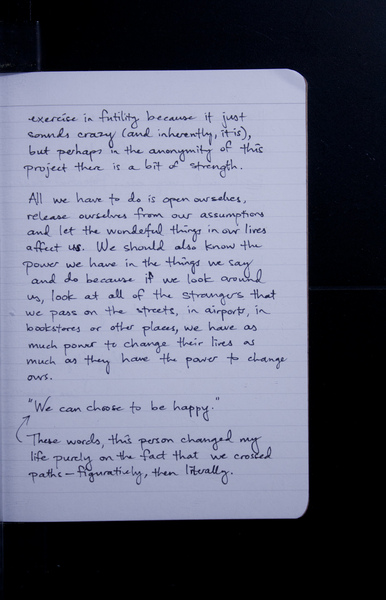 exercise in futility because it just
sounds crazy (and inherently, it is),
but perhaps in the anonymity of this
project there is a bit of strength.
All we have to do is open ourselves,
release ourselves from our assumptions
and let the wonderful things in our lives
affect us. We should also know the
power we have in the things we say
and do because if we look around
us, look at all of the strangers that
we pass on the streets, in airports, in
bookstores or other places, we have as
much power to change their lives as
much as they have the power to change
ours.
"We can choose to be happy."
These words, this person changed my
life purely on the fact that we crossed
paths — figuratively, then literally.